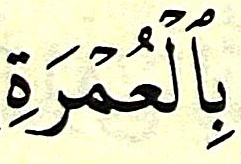 بِٱلْعُمْرَةِ